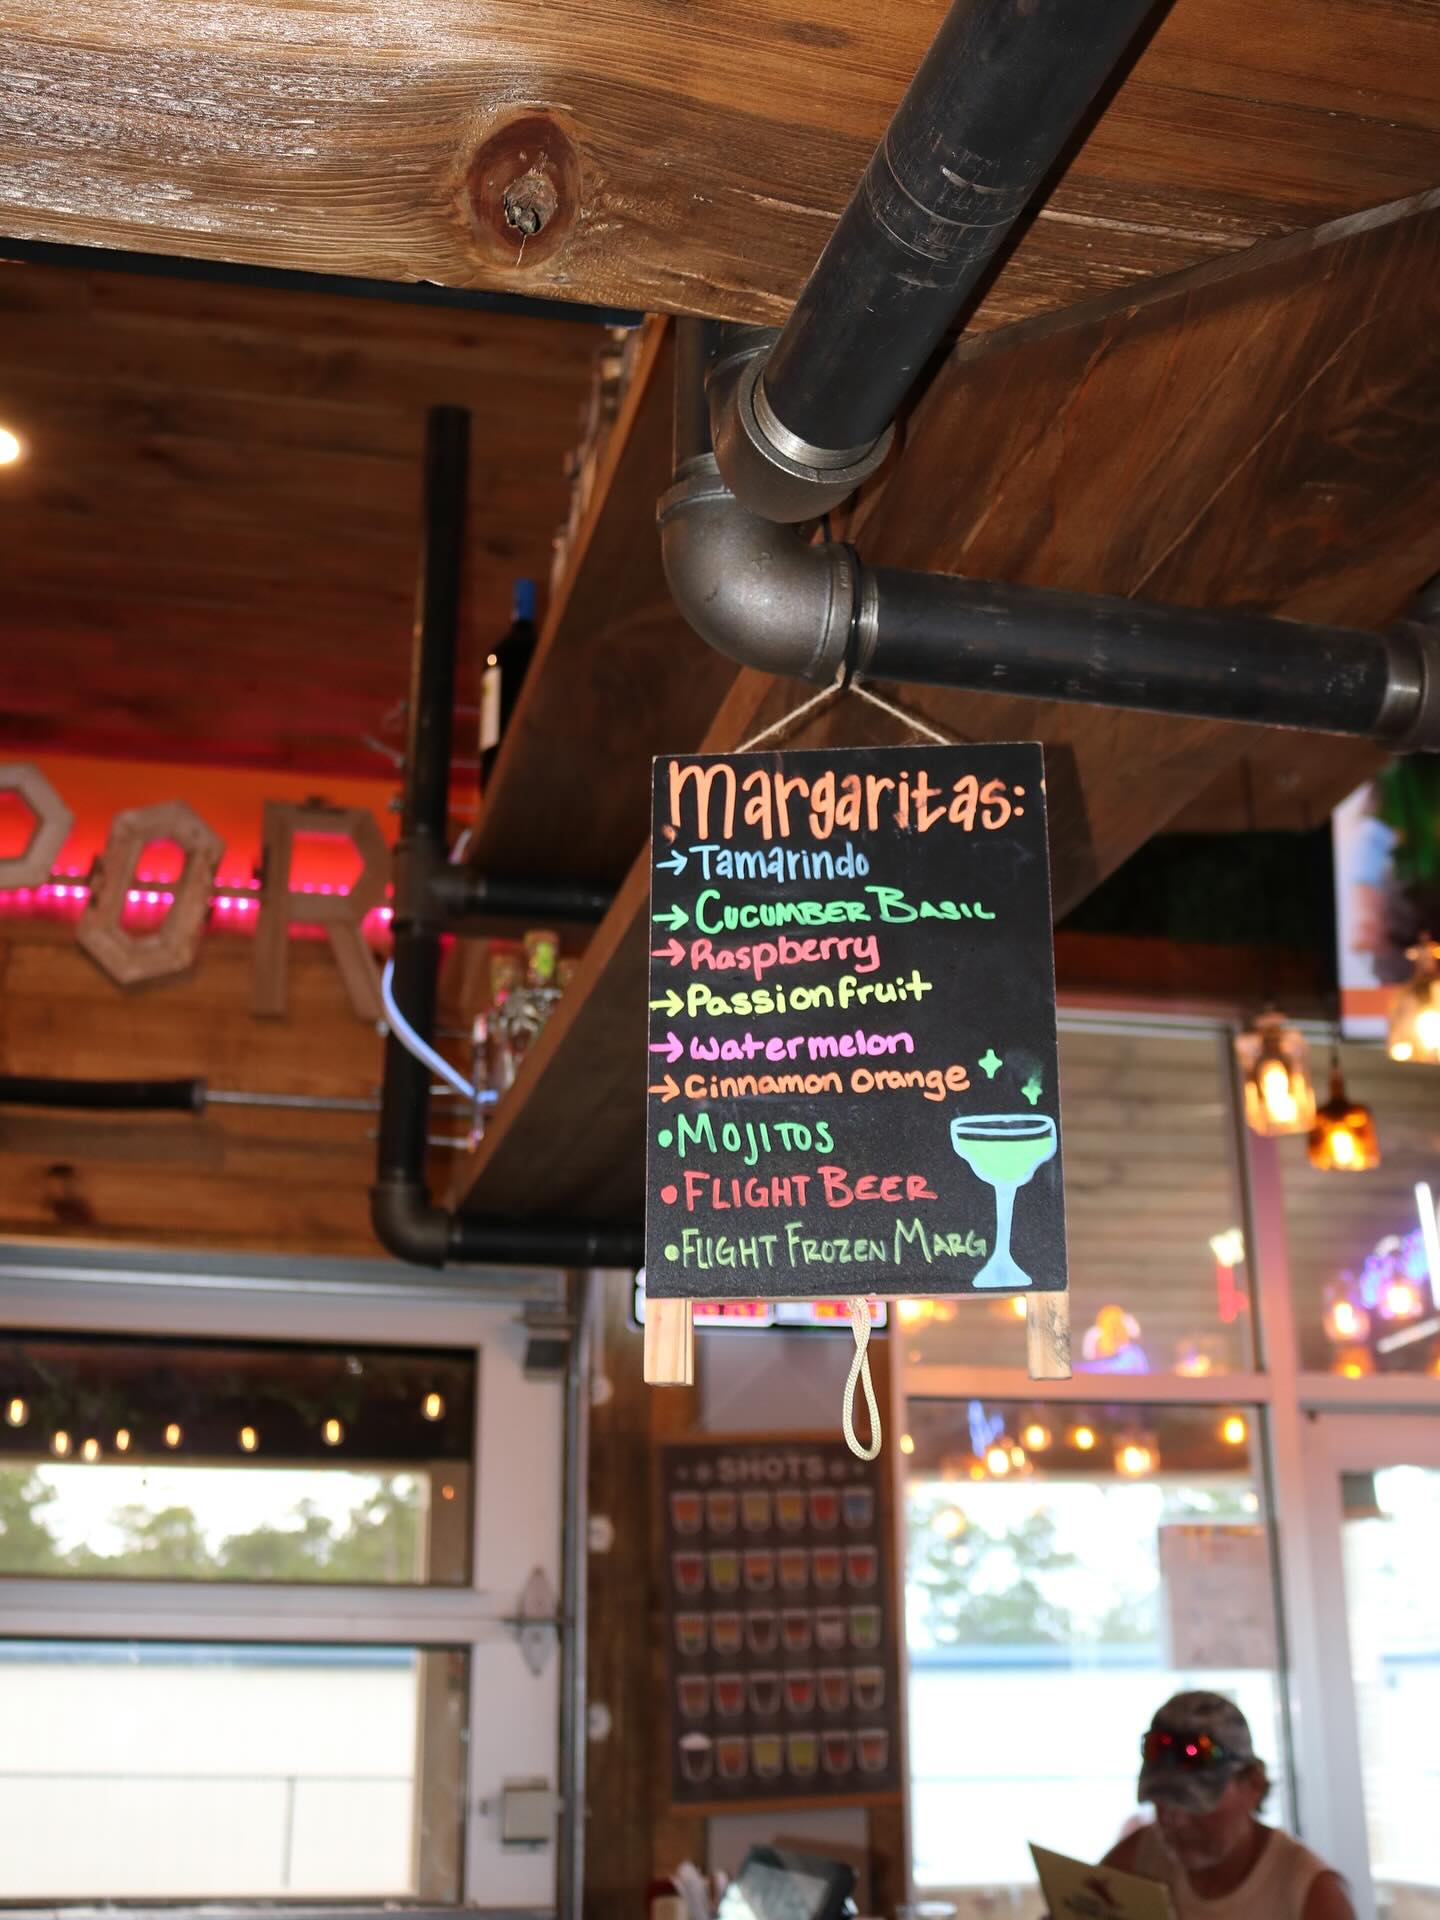 POR
Margaritas:
→Tamarindo
→CUCUMBER BASIL
→Raspberry
→Passionfruit
→watermelon
→cinnamon orange
•MOJITOS
•FLIGHT BEER
•FLIGHT FROZEN MARG
SHOTS